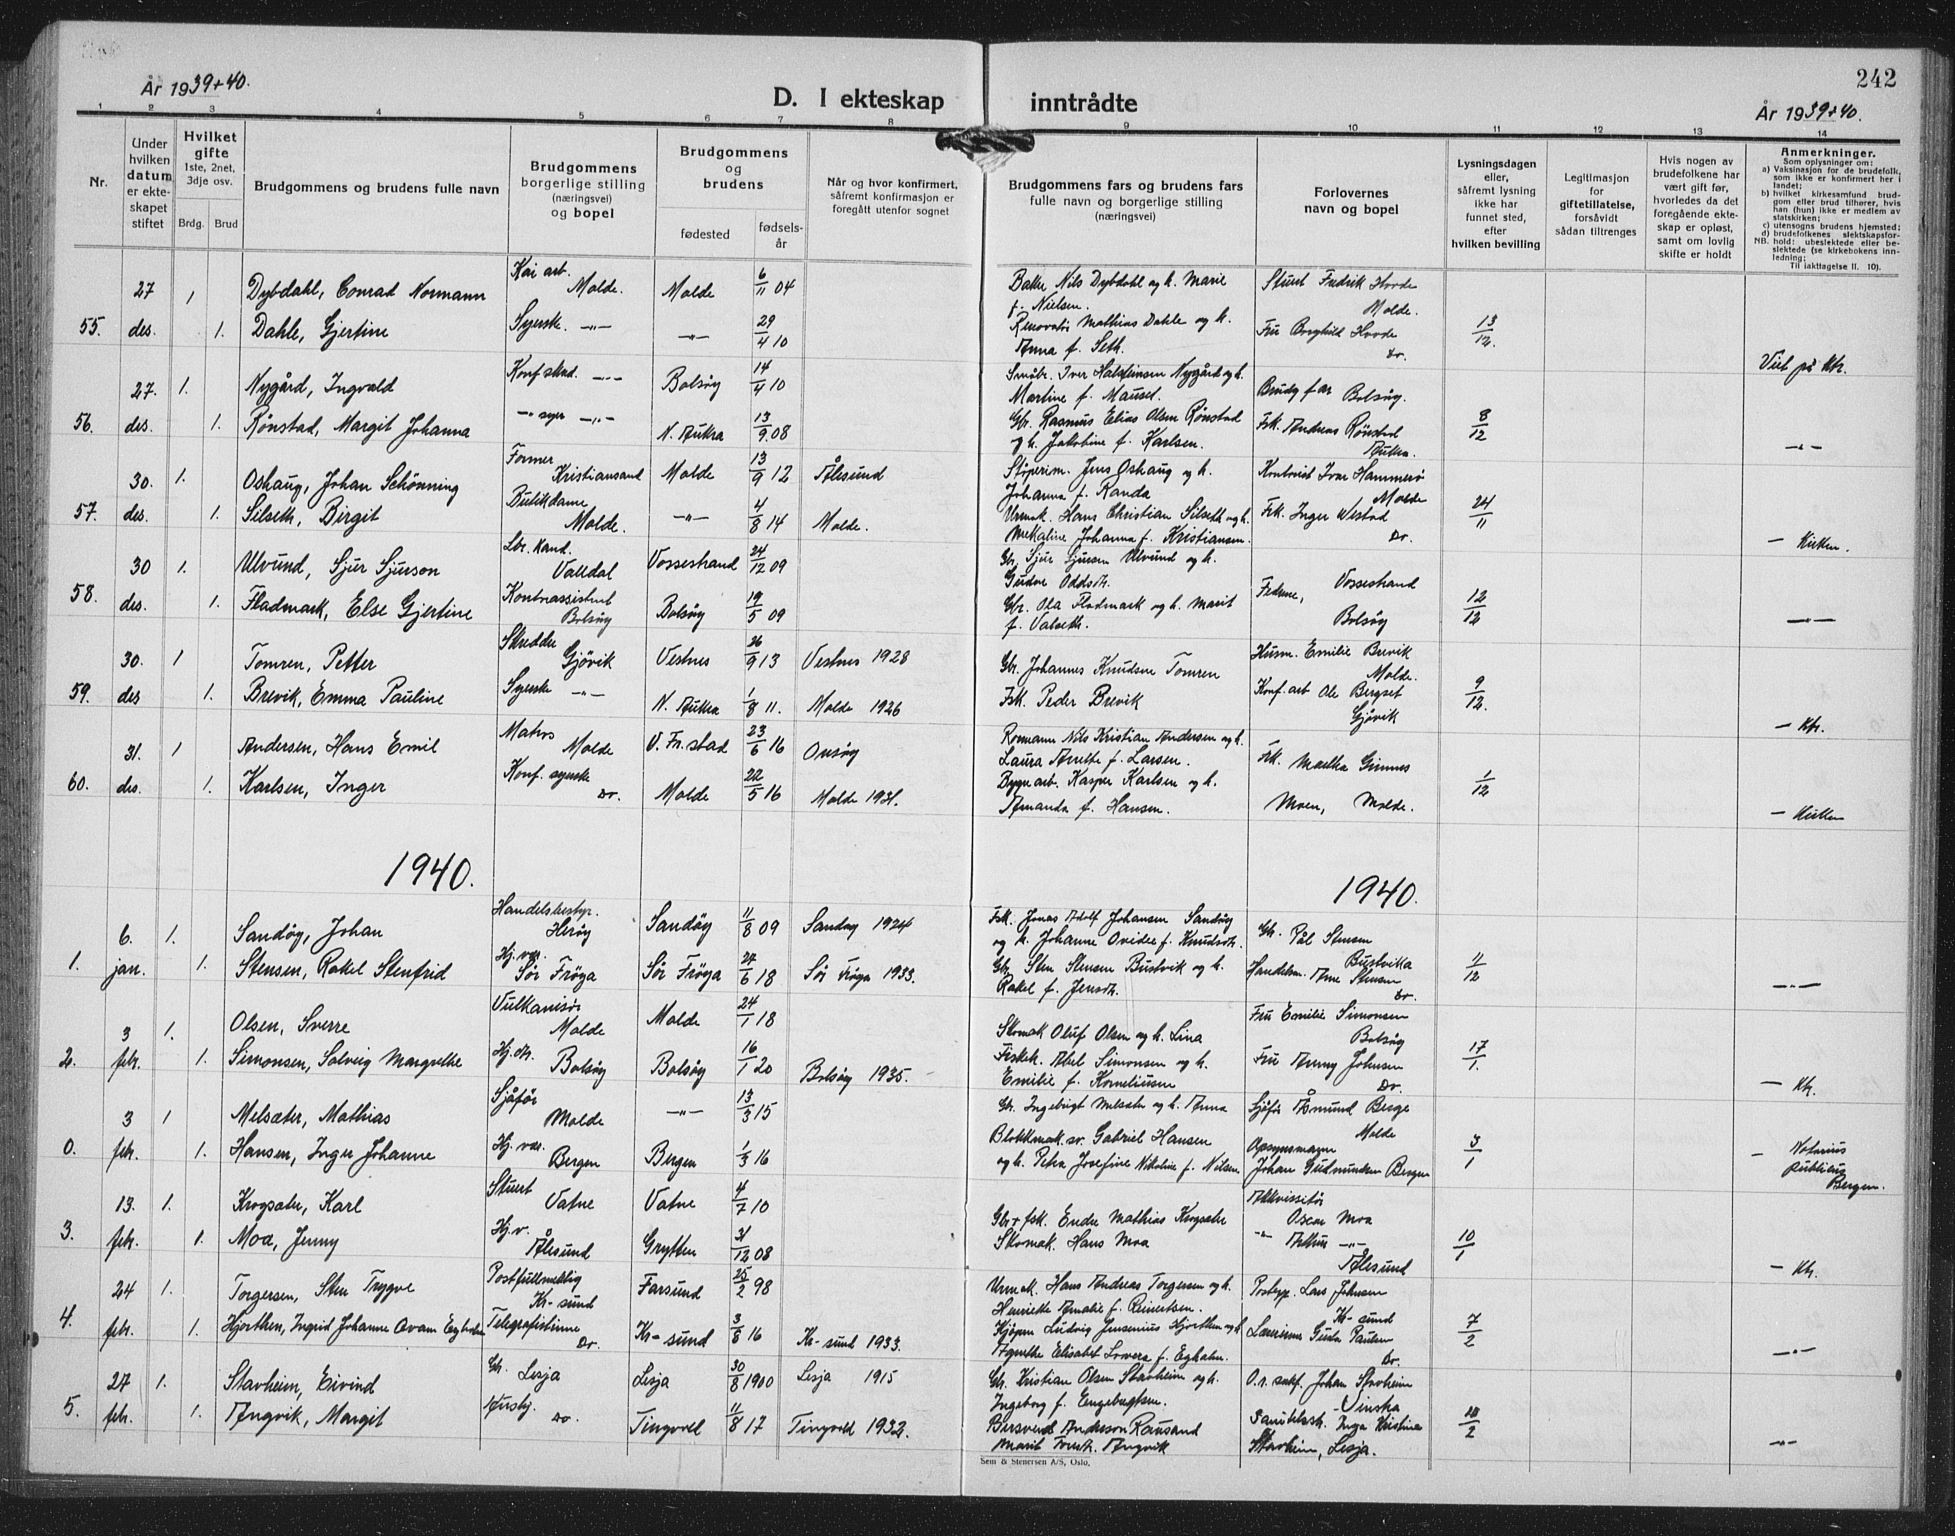 År 1939+40.
D. I ekteskap inntrådte
242
År 1939+40.
1 2 3 4 5 6 7 8 9 10 11 12 13 14
Nr.
Under hvilken datum er ekteskapet stiftet
Hvilket gifte 1ste, 2net, 3dje osv.
Brdg. Brud
Brudgommens og brudens fulle navn
Brudgommens borgerlige stilling (næringsvei) og bopel
Brudgommens og brudens
fødested
fødselsår
Når og hvor konfirmert, såfremt konfirmasjon er foregått utenfor sognet
Brudgommens fars og brudens fars fulle navn og borgerlige stilling (næringsvei)
Forlovernes navn og bopel
Lysningsdagen eller, såfremt lysning ikke har funnet sted, efter hvilken bevilling
Legitimasjon for giftetillatelse, forsåvidt sådan tiltrenges
Hvis nogen av brudefolkene har vært gift før, hvorledes da det foregående ekteskap er opløst, samt om lovlig skifte er holdt
Anmerkninger.
Som oplysninger om:
a) Vaksinasjon for de brudefolk, som ikke er konfirmert her i landet;
b) hvilket kirkesamfund brudgom eller brud tilhører, hvis han (hun) ikke er medlem av statskirken;
c) utensogns brudens hjemsted;
d) brudefolkenes slektskapsforhold: ubeslektede eller beslektede (se kirkebokens innledning;
NB.
Til iakttagelse II. 10).
27 1 Dybdahl, Conrad Normann Kai arb. Molde. Molde 6/11 04 Baker Nils Dybdahl og h. Marie f. Nielsen. Stuert Fredrik Hovde Molde.
55. des. 1. Dahle, Gjertine Syerske. -"- -"- 29/4 10 Renovatør Mathias Dahle og h. Anna f. Seth. Fru Borghild Hovde Do. 13/12. Viet på ktr.
27. 1. Nygård, Ingvald Konf.skred. -"- Bolsøy 14/4 10 Småbr. Iver Halsteinsen Nygård og h. Martine f. Mauset. Brudg far Bolsøy.
56. des. 1. Rønstad, Margit Johanna -"- syer -"- N. Aukra 13/9 08 Gbr. Rasmus Elias Olsen Rønstad og h. Jakobine f. Karlsen. Fsk. Andreas Rønstad Aukra. 8/12 -"-
30. 1. Oshaug, Johan Schønning Former Kristiansand Molde 13/9 12 Ålesund Støperim. Jens Oshaug og h. Johanna f. Randa Kontorist Ivar Hammerø Molde
57. des. 1. Silseth, Birgit Butikdame Molde. -"- 4/8 14 Molde. Urmak. Hans Christian Silseth og h. Mekaline Johanna f. Kristiansen. Frk. Inger Westad Do. 24/11 - Kirken.
30 1. Ulvund, Sjur Sjurson Lbr. kand. Valldal Vossestrand 24/12 09 Gbr. Sjur Sjursen Ulvund og h. Gudve Oddsdt. Fedrene, Vossestrand
58. des. 1. Fladmark, Else Gjertine Kontorassistent Bolsøy Bolsøy 19/5 09 Gbr. Ola Fladmark og h. Marit f. Valseth. Bolsøy 12/12 -"-
30. 1 Tomren, Petter Skredder Gjövik Vestnes 26/9 13 Vestnes 1928 Gbr. Johannes Knudsen Tomren Husm. Emilie Brevik Molde.
59. des 1. Brevik, Emma Pauline Syerske -"- N. Aukra 1/8 11. Molde 1926 Fsk. Peder Brevik Konf. arb Ole Bergset Gjövik 9/12. - ktr.
31. 1 Andersen, Hans Emil Matros Molde V. Fr.stad 23/6 16 Onsøy Rormann Nils Kristian Andersen og h. Laura Anette f. Larsen. Frk. Martha Gimnes
60. des. 1. Karlsen, Inger Konf. syerske Do. Molde 22/5 16 Molde 1931. Bygn arb. Kasper Karlsen og h. Amanda f. Hansen. Moen, Molde. 1/12 - Kirken
1940. 1940.
6. 1. Sandøy, Johan Handelsbestyr. Herøy Sandøy 11/8 09 Sandøy 1924 Fsk. Jonas Adolf Johansen Sandøy og h. Johanne Ovidie f. Knudsdt. Gbr. Pål Stensen Bustvika
1. jan. 1. Stensen, Rakel Stenfrid Hj.vær. Sør Frøya Sør Frøya 27/6 18 Sør Frøya 1933. Gbr. Sten Stensen Bustvik og h. Rakel f. Jensdt. Handelsm. Arne Stensen Do. 11/12 -"-
3 1. Olsen, Sverre Vulkanisør Molde Molde 24/1 18 Skomak Oluf Olsen og h. Lina Fru Emilie Simonsen Bolsøy
2. febr. 1. Simonsen, Solveig Margrethe Hj.dt. Bolsøy Bolsøy 16/1 20 Bolsøy 1935. Fiskek. Abel Simonsen og h. Emilie f. Korneliusen Fru Anny Johnsen Do 17/1. - Ktr.
3 1 Melsæter, Mathias Sjåfør Molde -"- 13/3 15 Gbr. Ingebrigt Melsæter og h. Anna Sjåfør Åsmund Berge Molde
0. febr. 1. Hansen, Inger Johanne Hj. vær. Bergen Bergen 1/3 16 Blokkmak. sv. Gabriel Hansen og h. Petra Josefine Nikoline f. Nilsen Opsynsmann Johan Gudmundsen Bergen 3/1 - Notarius Publicus Bergen.
13. 1. Krogsæter, Karl Stuert Vatne Vatne 4/7 10 Gbr + fsk. Endre Mathias Krogsæter Akkvisitør Oscar Moa
3. febr. 1. Moa, Jenny Hj.v. Ålesund Grytten 31/12 08 Skomak. Hans Moa -"- Arthur -"- Ålesund 10/1 - Ktr.
24 1. Torgersen, Sten Trygve Postfullmektig Kr-sund Farsund 25/2 98 Urmak. Hans Andreas Torgersen og h. Henriette Amalie f. Reinertsen. Postexp. Lars Johnsen Kr-sund
4. febr. 1. Hjorthen, Ingrid Johanne Ovam Egholm Telegrafistinne Do. Kr-sund 3/8 16 Kr-sund 1933. Kjøpm Ludvig Jensenius Hjorthen og h Agnethe Elisabet Lovera f. Egholm. Lærerinne Guda Paulsen Do. 7/2 -"-
27 1. Stavheim, Eivind Gbr. Lesja Lesja 30/8 1900 Lesja 1915 Gbr. Kristian Olsen Stavheim og h. Ingeborg f. Engebrigtsen. O.r. sakf. Johan Stavheim Vinstra
5. febr. 1. Angvik, Margit Husbj. Do. Tingvoll 11/8 17 Tingvold 1932. Bersvend Andersson Rausand Marit Angvik Inga Kristine Stavheim, Lesja. 10/2 -"-
Sem & Stenersen A/S, Oslo.